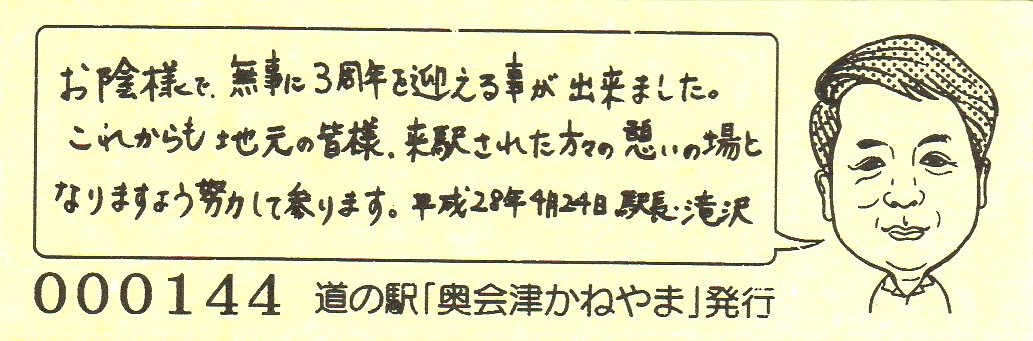 お陰様で、無事に3周年を迎える事が出来ました。
これからも地元の皆様、来駅された方々の憩いの場と
なりますよう努力して参ります。平成28年4月24日 駅長・滝沢
000144 道の駅「奥会津かねやま」発行